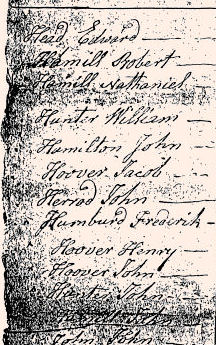 Head Edward
Hamill Robert
Hamill Nathaniel
Hunter William
Hamilton John
Hoover Jacob
Herrod John
Humburd Frederik
Hoover Henry
Hoover John
John
John John